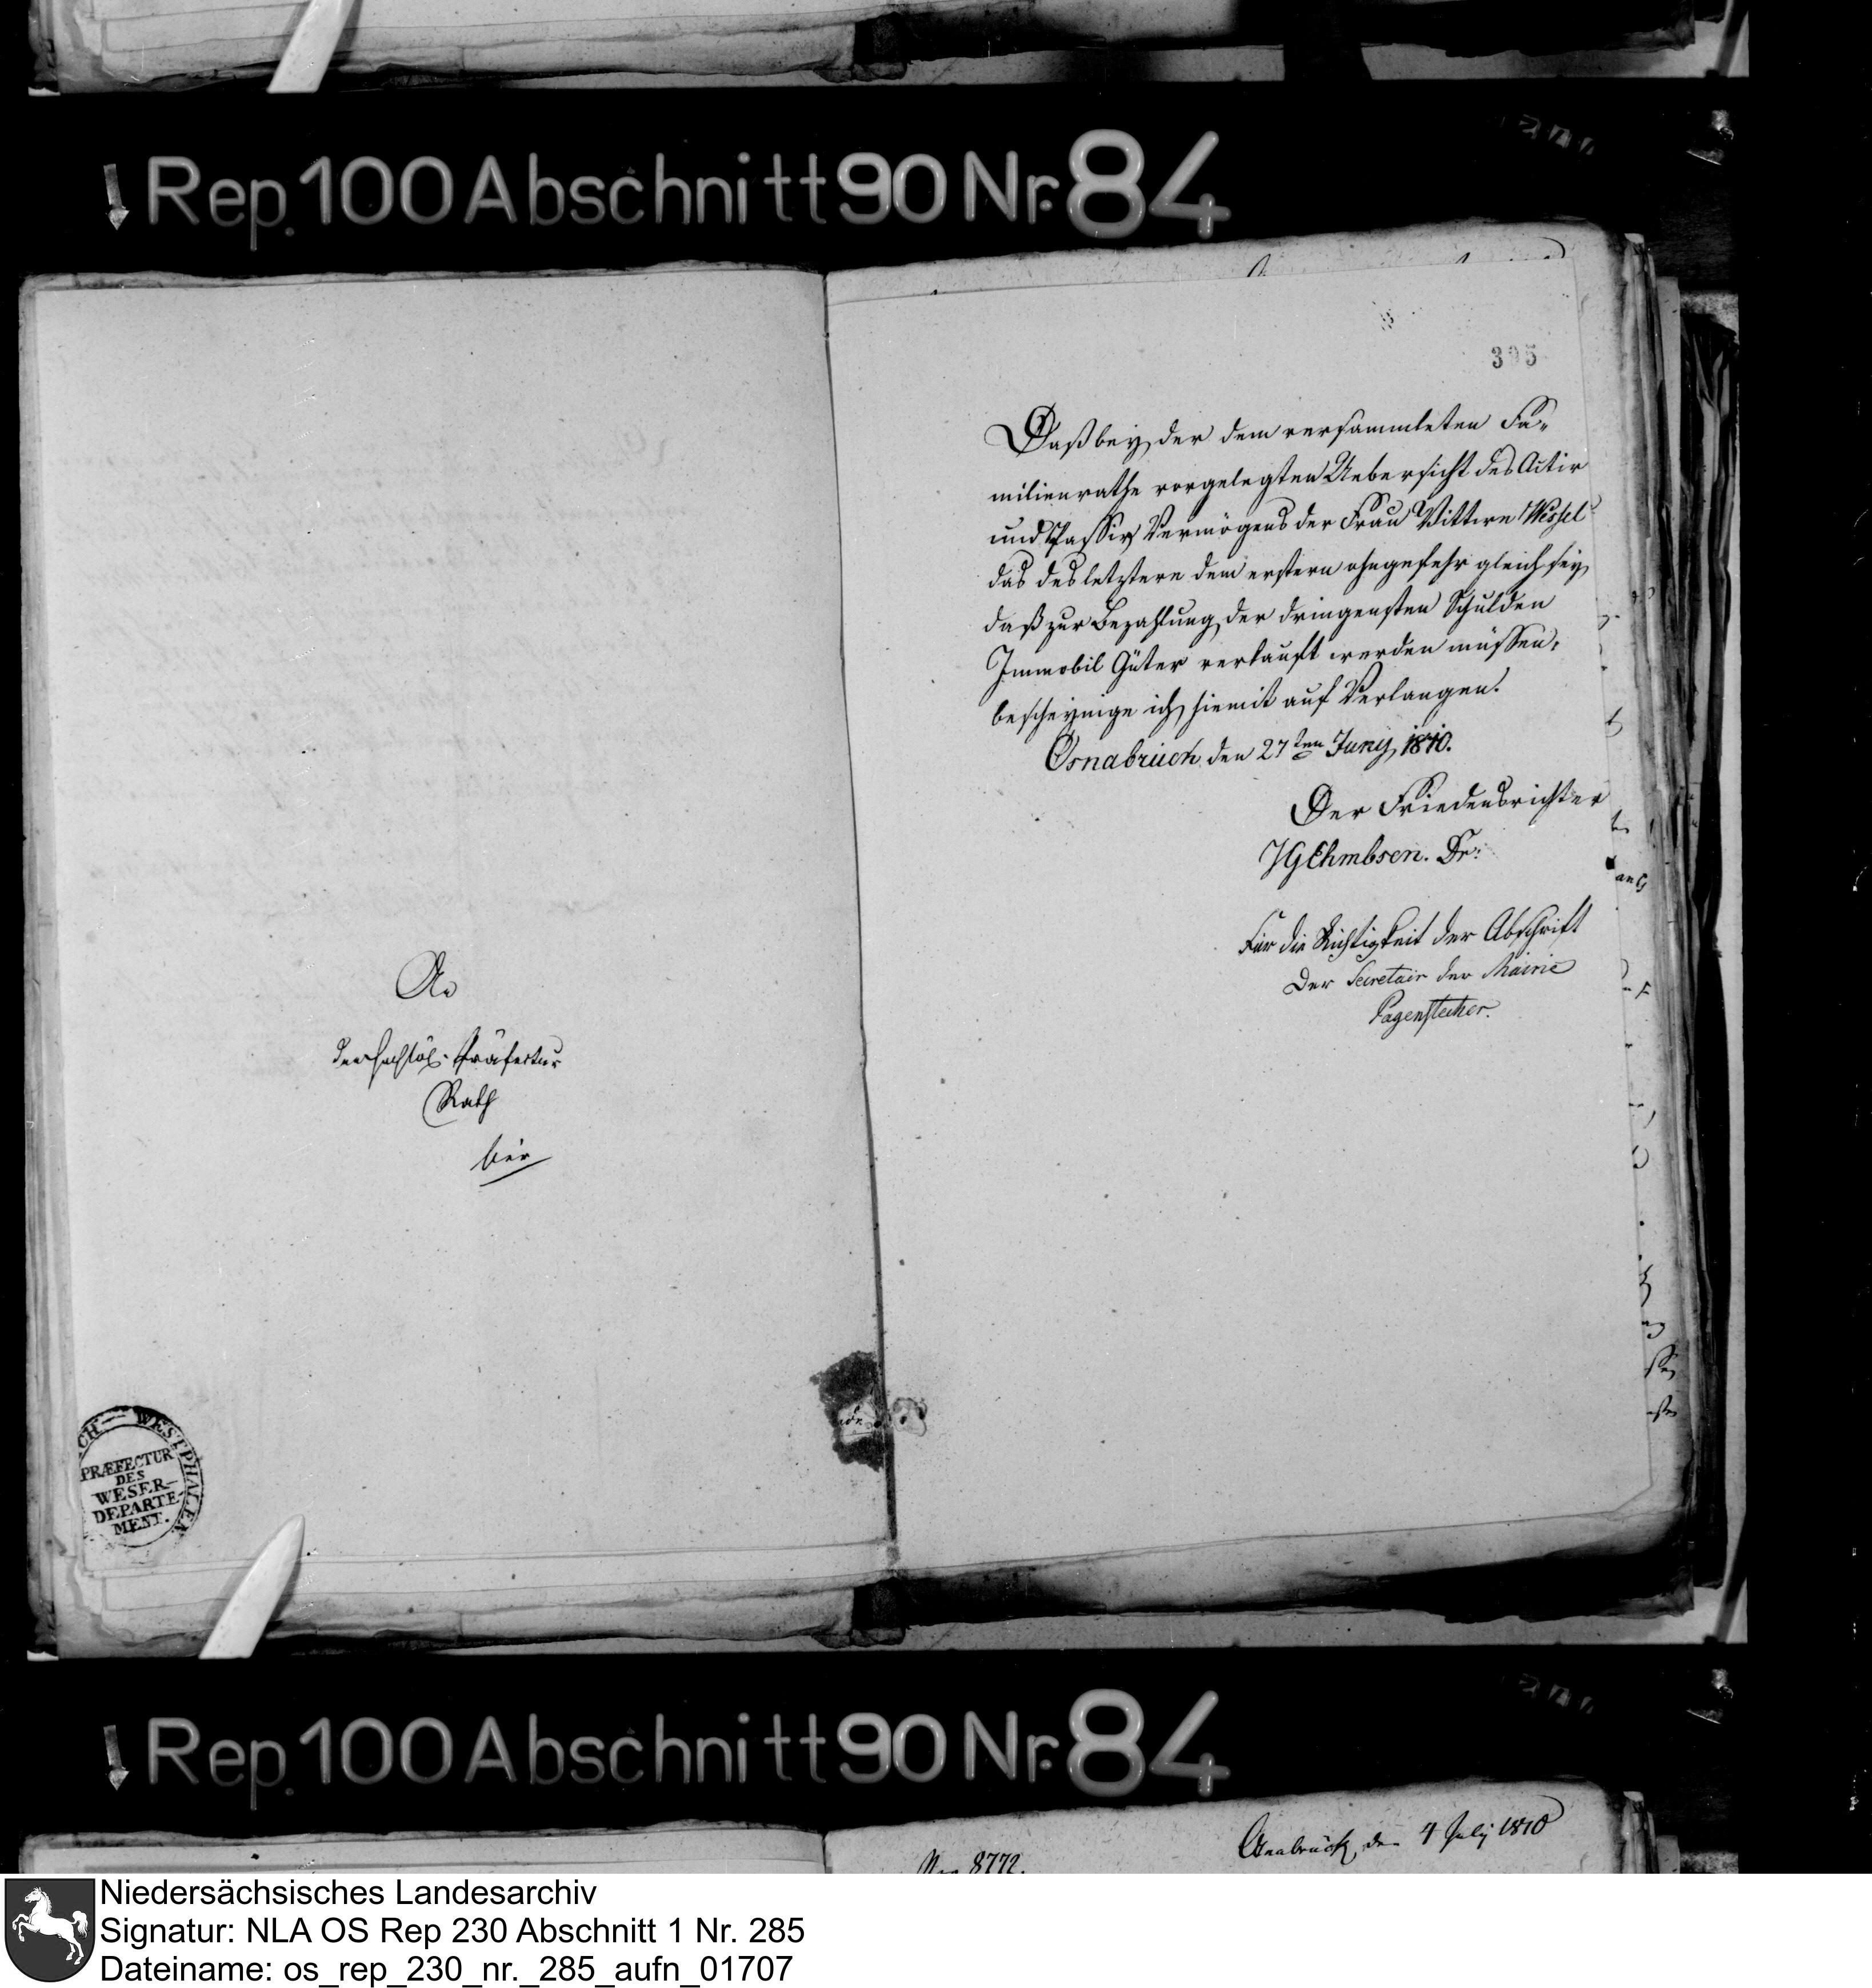 Rep. 100 Abschnitt 90 Nr. 84
An
Präfectur
Rath
hier
WESTPHALEN
PRÆFECTUR
DES
WESER-
DEPARTE-
MENT.
395
Daß bey der dem versammleten Fa-
milienrathe vorgelegten Uebersicht des Activ
und Passiv Vermögens der Frau Wittwe Wessel
das des letztere dem erstern ohngefehr gleich sey,
daß zur Bezahlung der dringensten Schulden
Immobil Güter verkauft werden müssen,
bescheynige ich hiemit auf Verlangen.
Osnabrück den 27ten Juny 1810.
Der Friedensrichter
Dr:
Für die Richtigkeit der Abschrift
Der Secretair der Mairie
Pagenstecher.
Rep. 100 Abschnitt 90 Nr. 84
Osnabrück, den 4 July 1810
8772.
Niedersächsisches Landesarchiv
Signatur: NLA OS Rep 230 Abschnitt 1 Nr. 285
Dateiname: os_rep_230_nr._285_aufn_01707